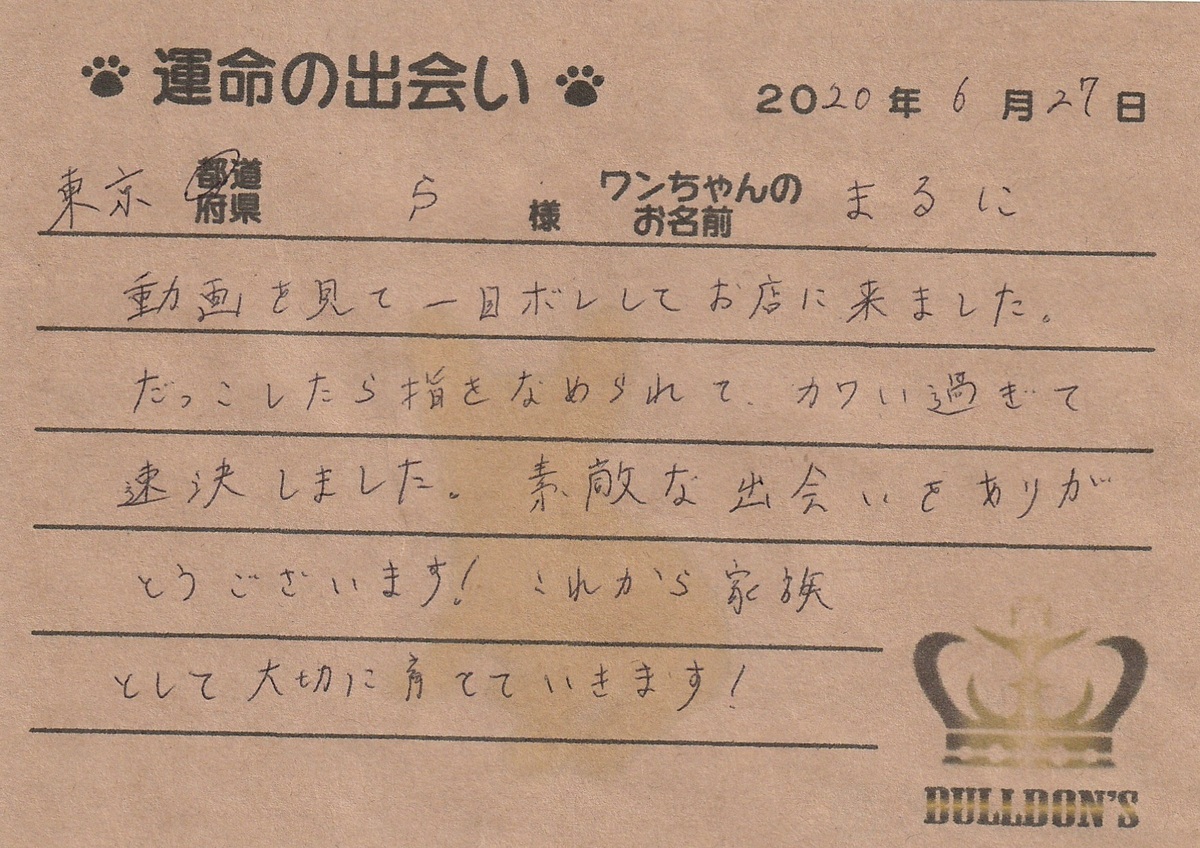 運命の出会い
2020年6月27日
東京 都道府県 ら 様 ワンちゃんのお名前 まるに
動画を見て一目ボレしてお店に来ました。
だっこしたら指をなめられて、カワい過ぎて
速決しました。素敵な出会いをありが
とうございます!これから家族
として大切に育てていきます!
BULLDON'S